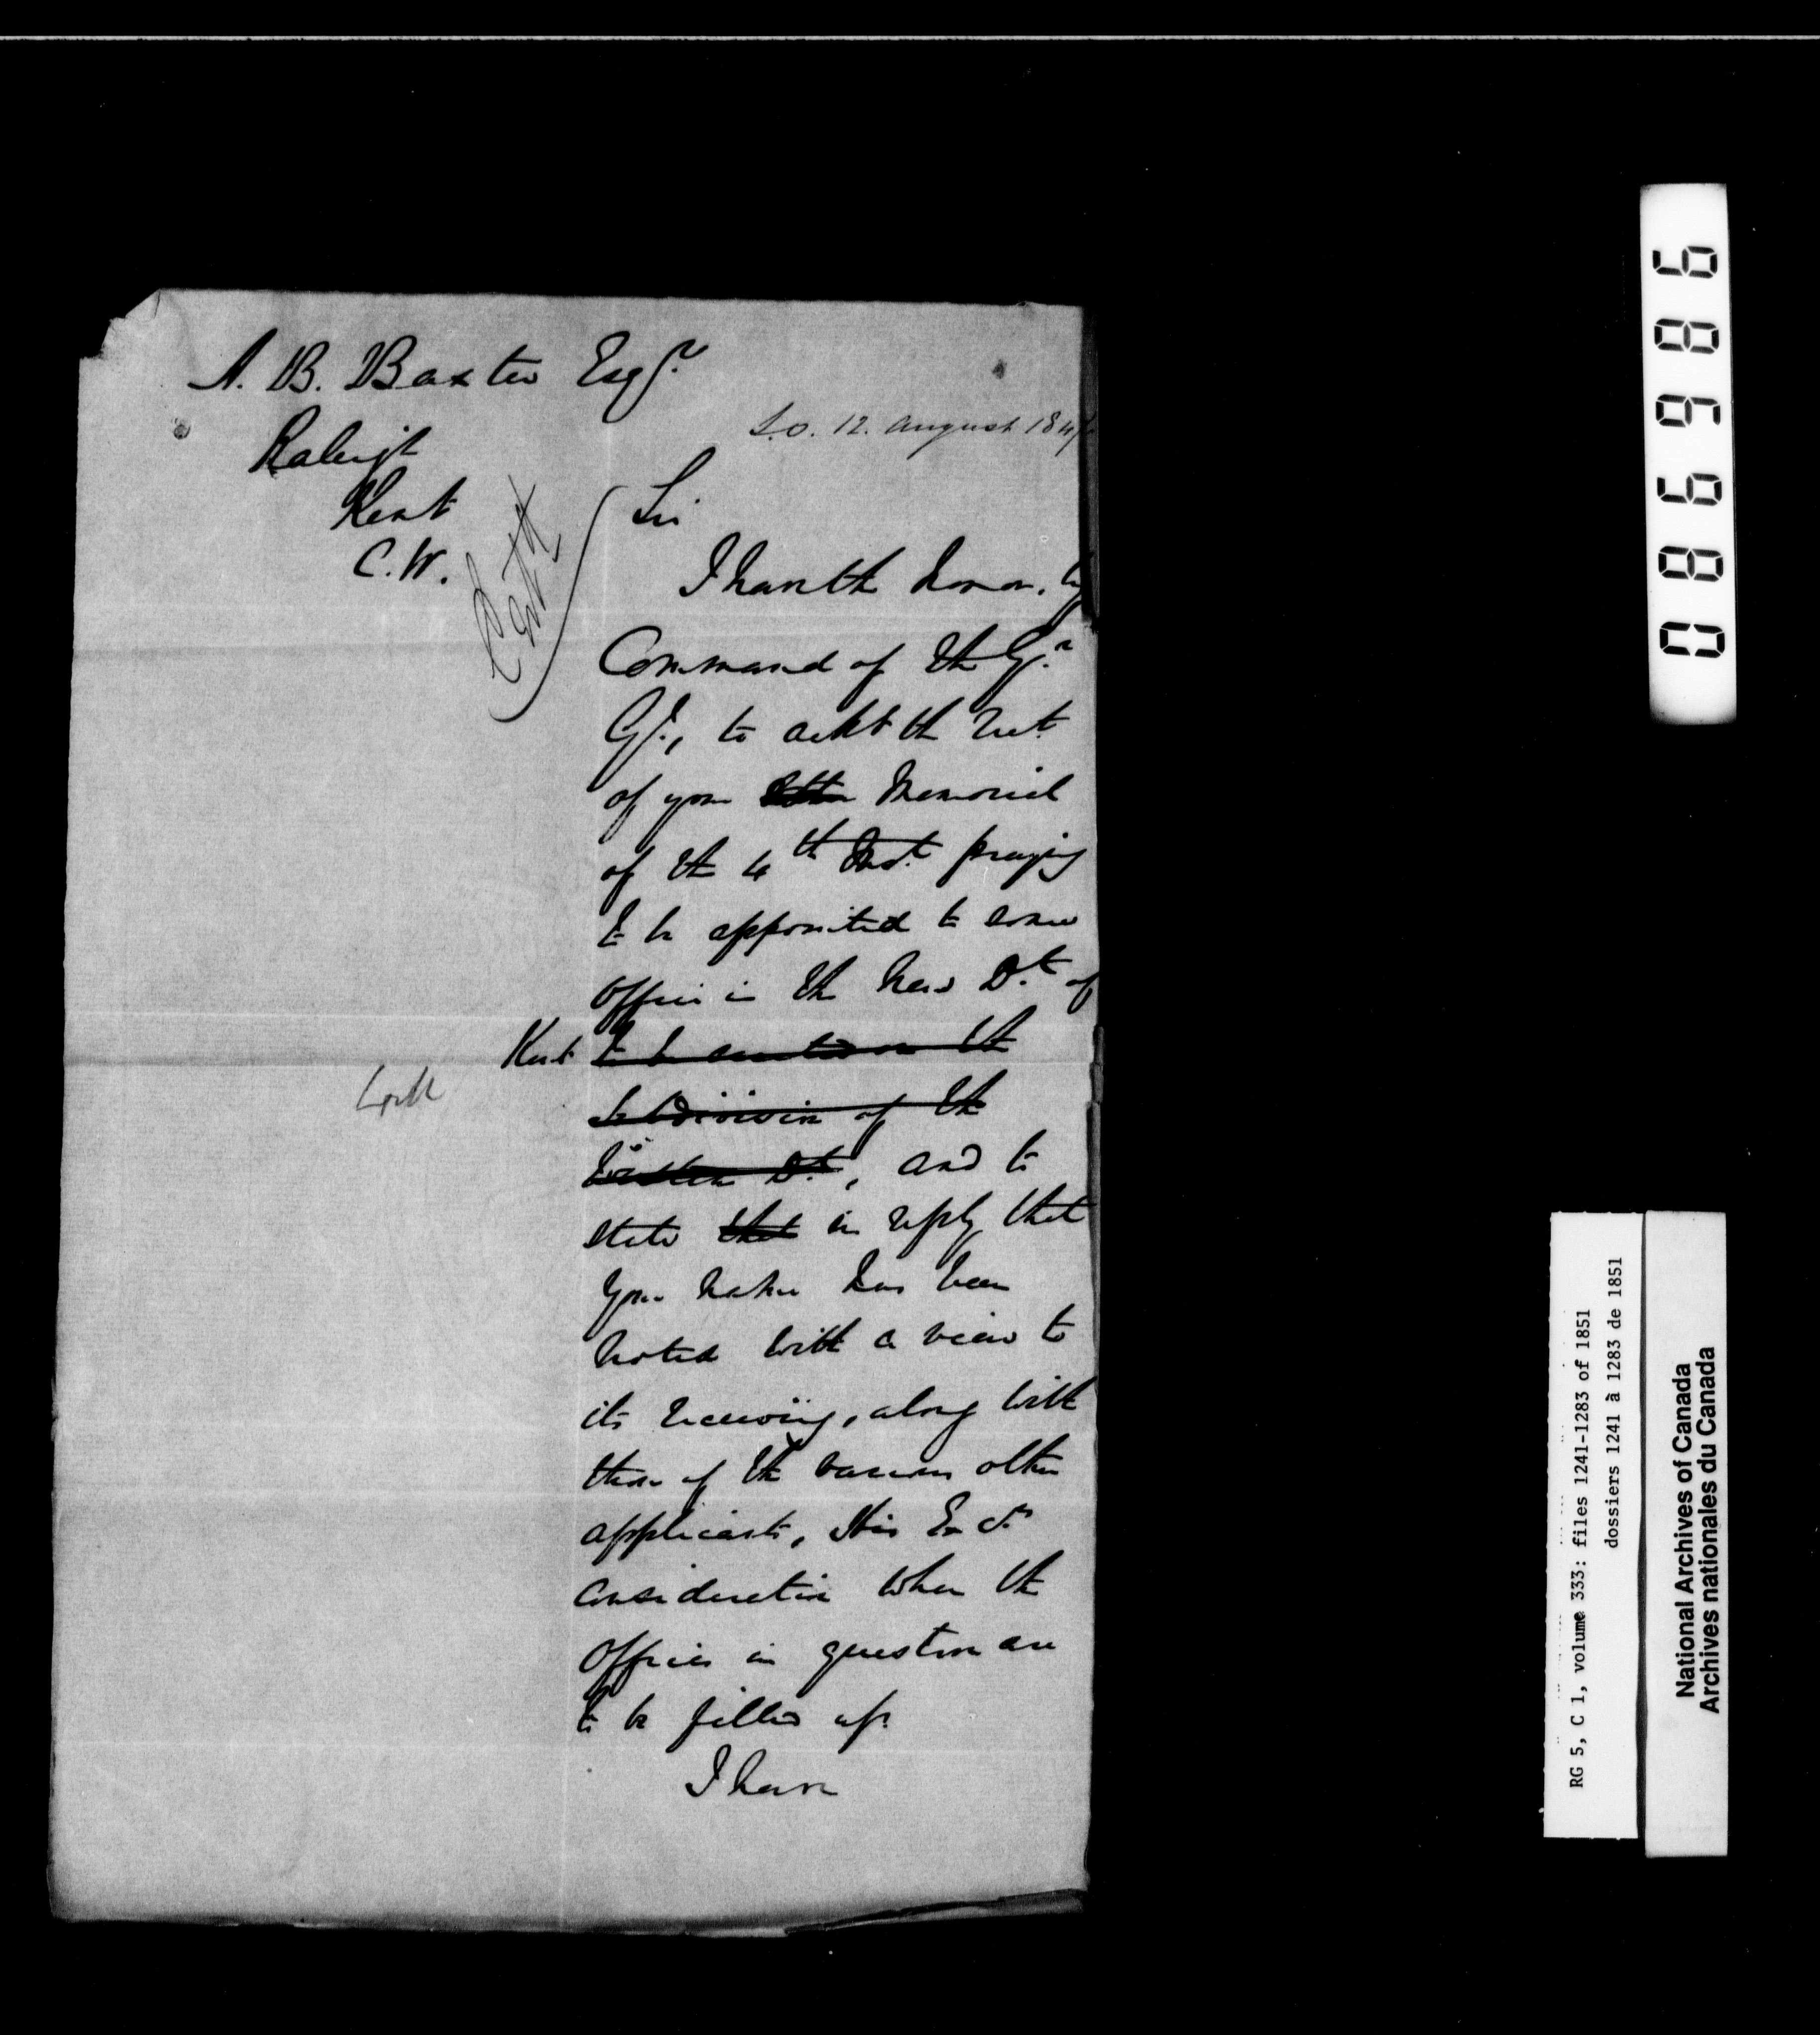 A. B. Baxter Esqr.
Raleigh
Kent
C.W.
S.O. 12. August 184
Sir
I have the honor, by
Command of the Gr.
Gl., to ackt the rect.
of your letter Memorial
of the 4th Inst. praying
to be appointed to some
office in the new Dt. of
Kent to be erected on the
subdivision of the
Western Dt., and to
state that in reply that
your name has been
noted with a view to
its receiving, along with
those of the various other
applicants, His Excys.
consideration when the
offices in question are
to be filled up.
I have
086986
RG 5, C 1, volume 333: files 1241-1283 of 1851
dossiers 1241 à 1283 de 1851
National Archives of Canada
Archives nationales du Canada